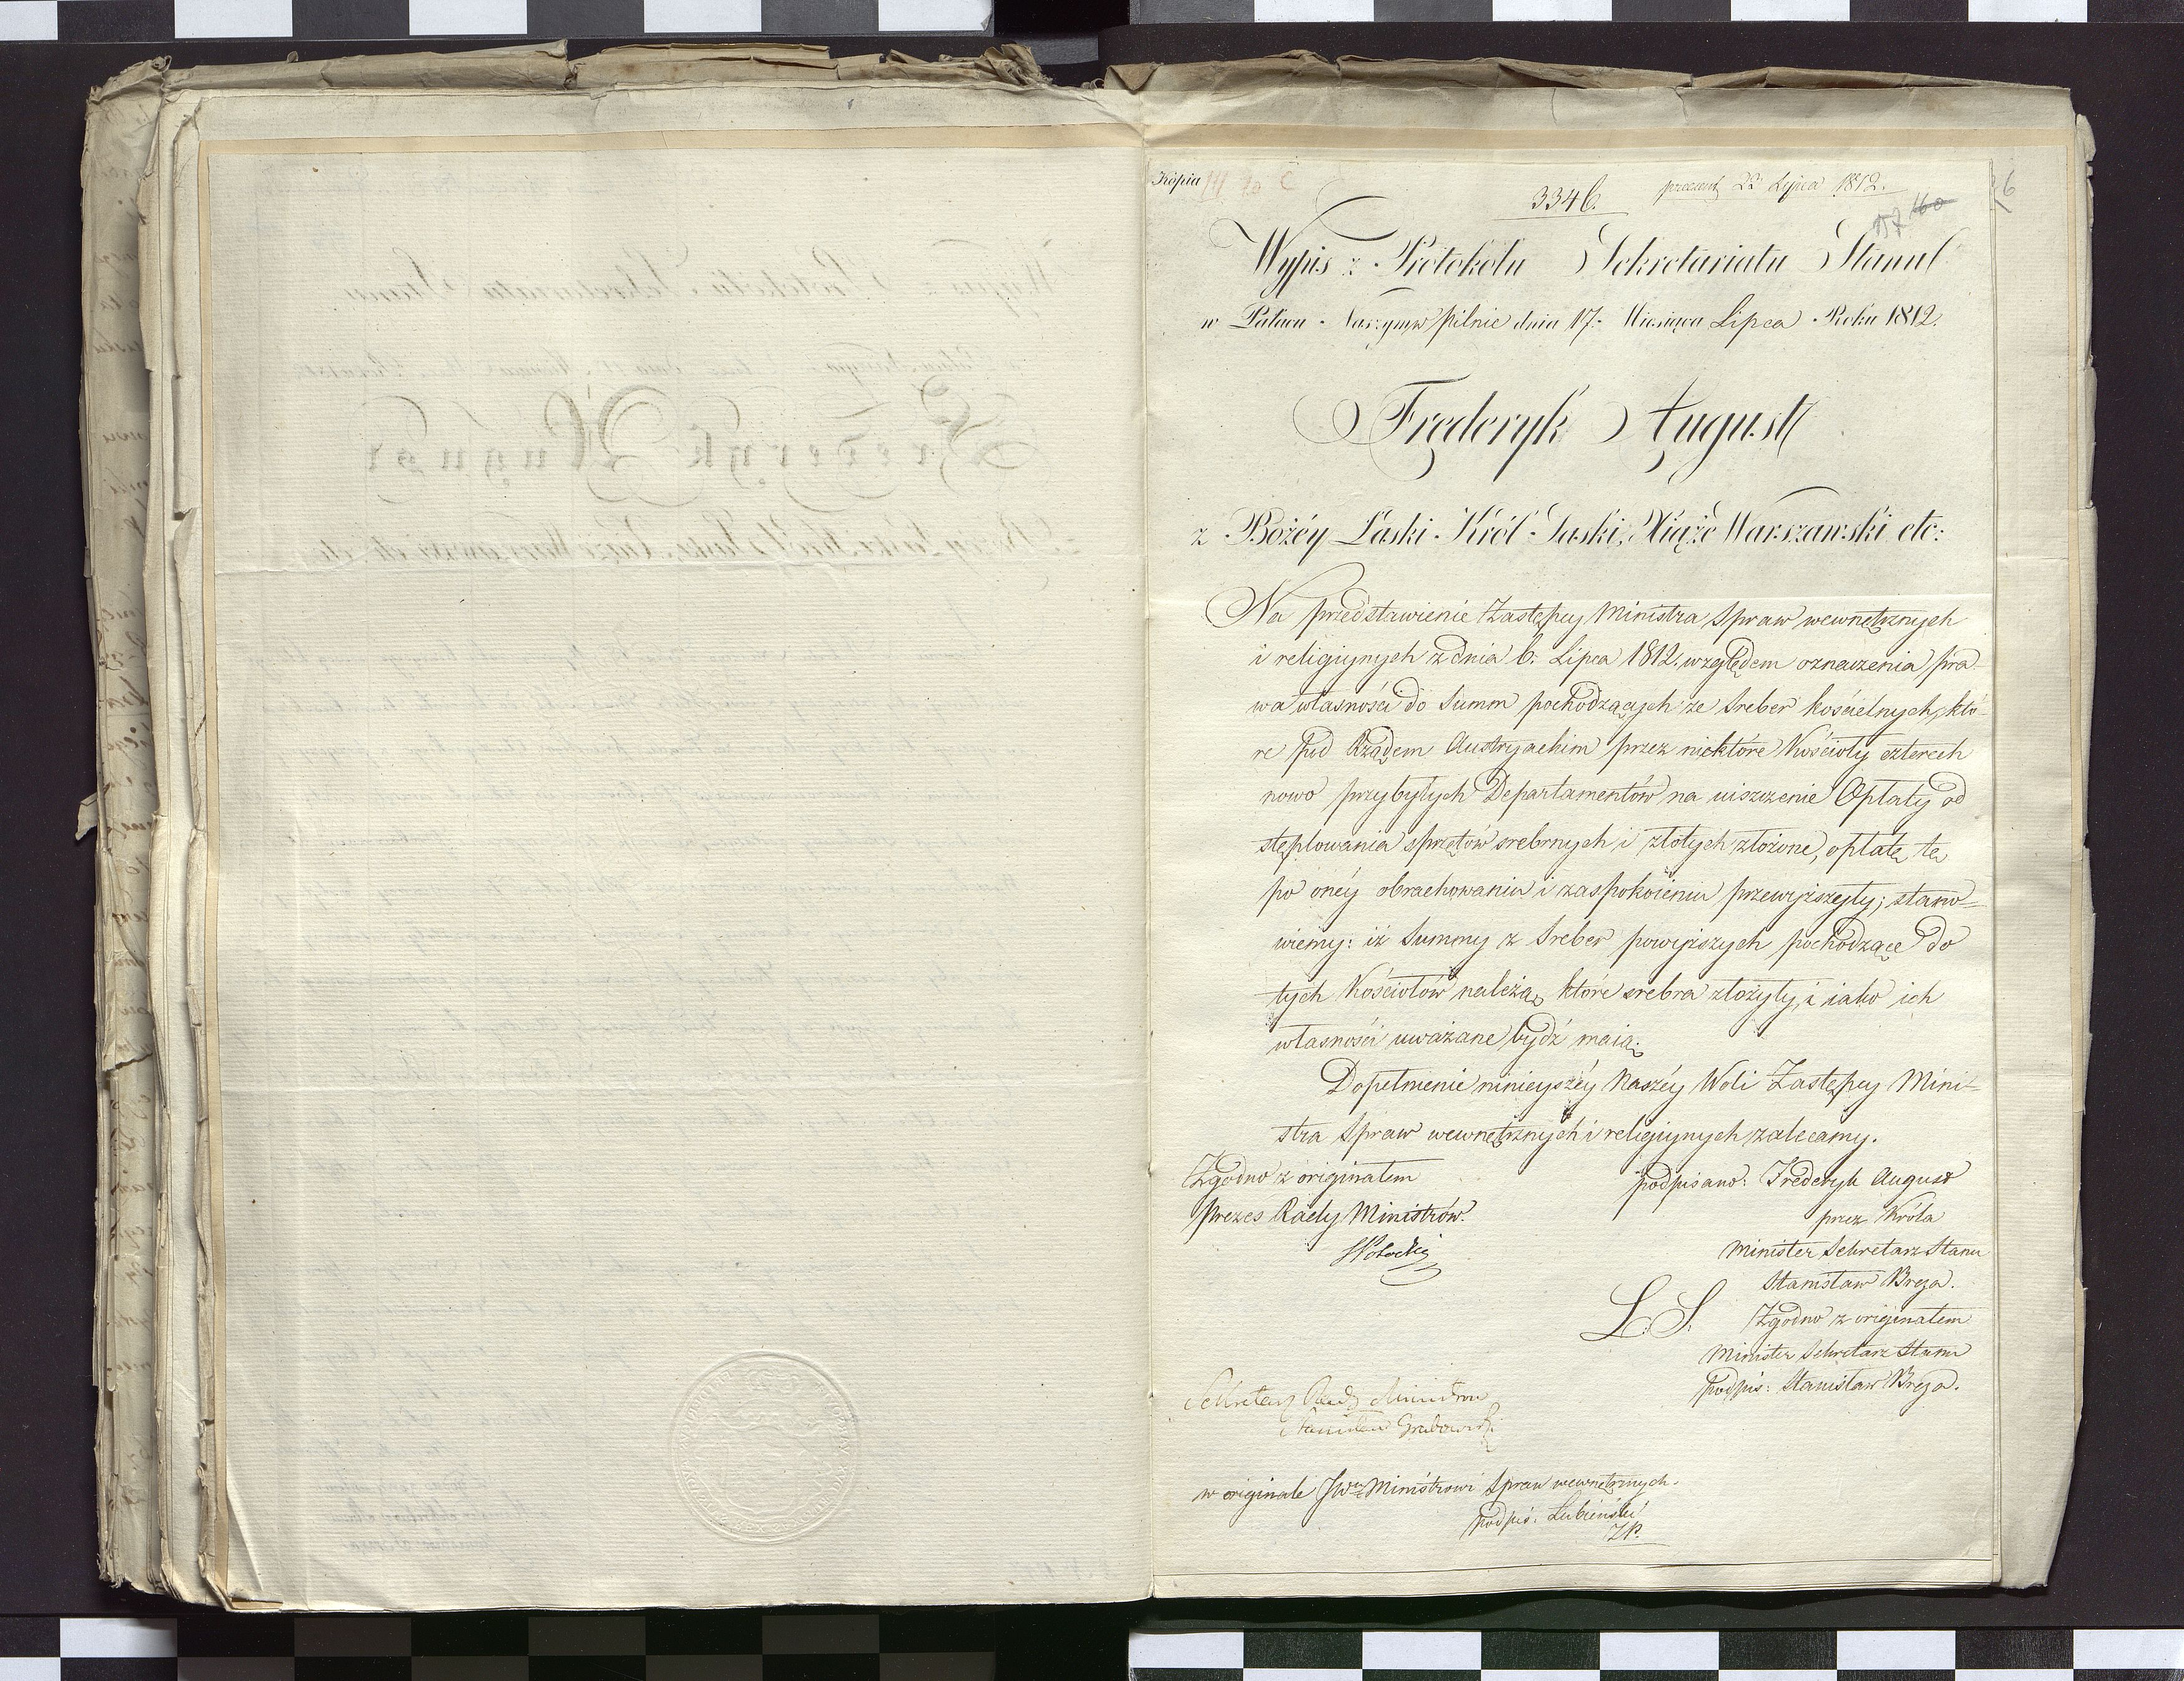 Kopia
3346.
praesent 22 Lipca 1812.
157 160
Wypis z Protokołu Sekretariatu Stanu
w Pałacu Naszym w Pilnic dnia 17. Miesiąca Lipca Roku 1812.
Fryderyk August
z Bożéy Łaski Król Saski, Xiąże Warszawski etc:
Na przedstawienie Zastępcy Ministra Spraw wewnętrznych
i religiynych z dnia 6. Lipca 1812. względem oznaczenia pra-
wa własności do Summ pochodzących ze Sreber kościelnych, któ-
re pod Rządem Austryackim przez niektóre Kościoły czterech
nowo przybyłych Departamentów na uiszczenie Opłaty od
stęplowania sprzętów srebrnych i złotych złożone, opłatę tę
po onéy obrachowaniu i zaspokoieniu przewyższyły; stano-
wiemy: iż Summy z Sreber powyższych pochodzące do
tych Kościołów należą, które srebra złożyły, i iako ich
własności uważane bydź maią.
Dopełnienie ninieyszéy Naszéy Woli Zastępcy Mini-
stra Spraw wewnętrznych i religiynych zalecamy.
Zgodno z originałem
Prezes Rady Ministrów.
SPotocki
podpisano: Frederyk August
przez Króla
Minister Sekretarz Stanu
Stanisław Breza.
L. S.
Zgodno z originałem
Minister Sekretarz Stanu
podpis: Stanisław Breza.
Sekretarz Rady Ministrow
Stanisław Grabowski
w originale Ministrowi Spraw wewnętrznych.
podpis: Łubieński
ZP.